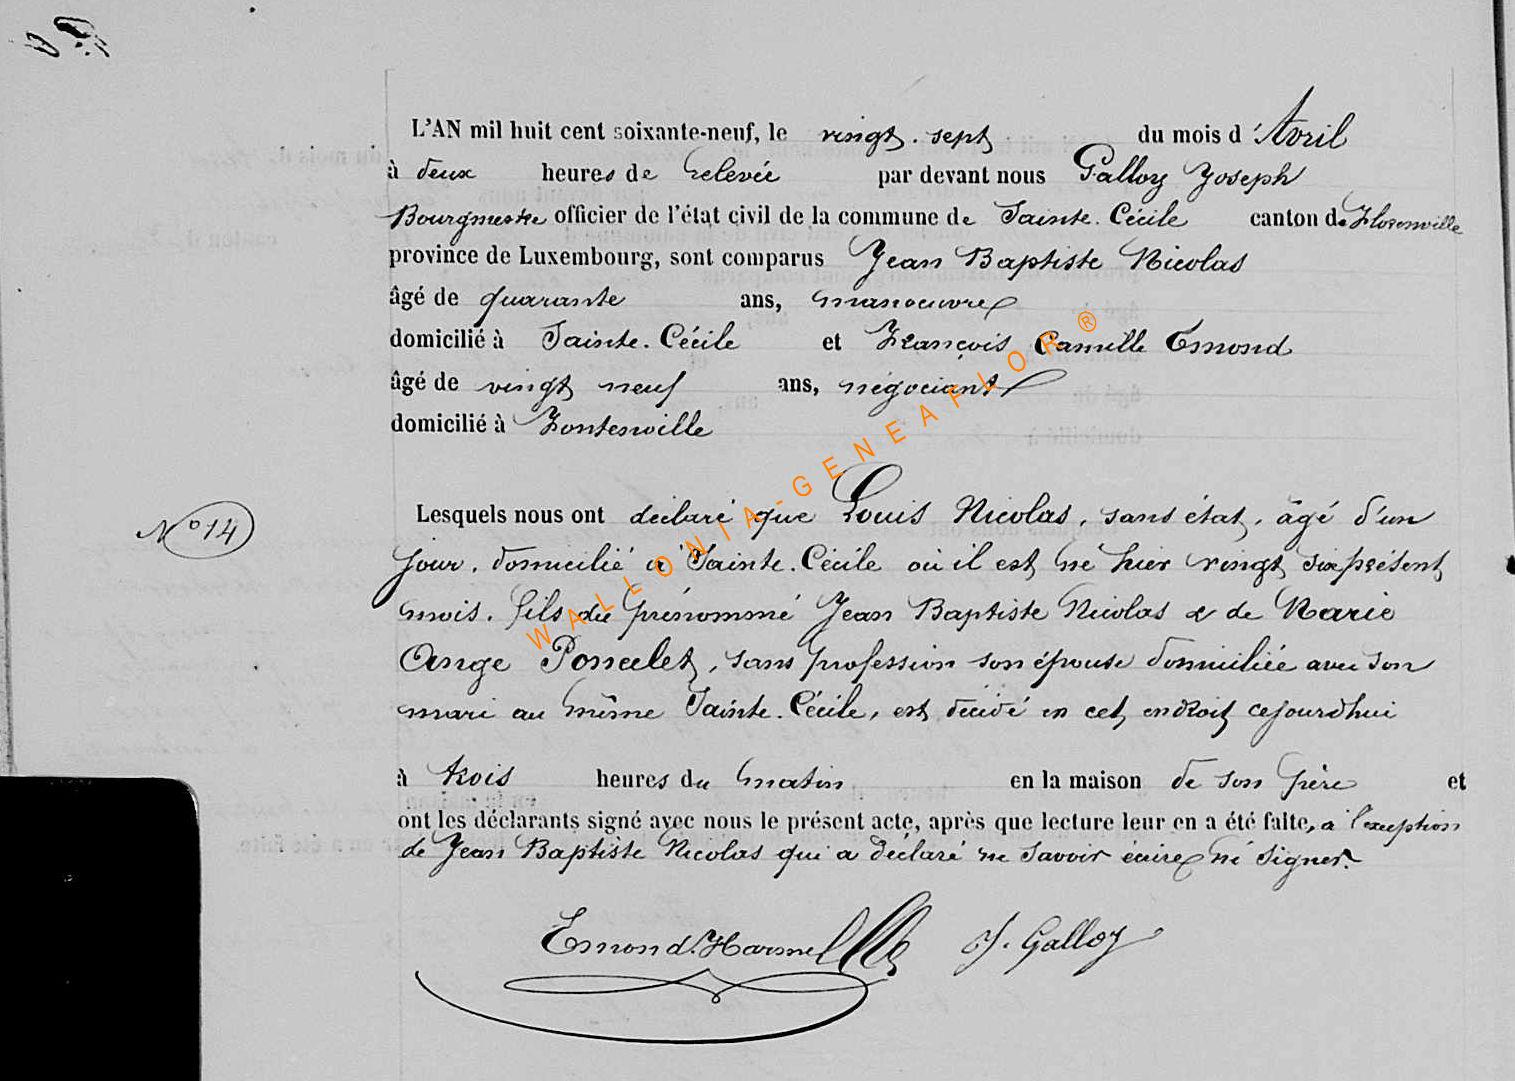 L'AN mil huit cent soixante-neuf, le vingt. sept du mois d'Avril
à deux heures de relevée par devant nous Galloy Joseph
Bourgmestre officier de l'état civil de la commune de Sainte. Cécile canton de Florenville
province de Luxembourg, sont comparus Jean Baptiste Nicolas
âgé de quarante ans, manoeuvre
domicilié à Sainte. Cécile et François Camille Emond
âgé de vingt neuf ans, négociant
domicilié à Fontenoille
WALLONIA-GENEAFLOR®
N° 14
Lesquels nous ont déclaré que Louis Nicolas, sans état, âgé d'un
jour, domicilié à Sainte. Cécile où il est né hier vingt six présent
mois. fils du prénommé Jean Baptiste Nicolas & de Marie
Ange Poncelet, sans profession son épouse domiciliée avec son
mari au même Sainte. Cécile, est décédé en cet endroit cejourdhui
à trois heures du matin en la maison de son père et
ont les déclarants signé avec nous le présent acte, après que lecture leur en a été faite, à l'exception
de Jean Baptiste Nicolas qui a déclaré ne savoir écrire ni signer.
Emond. Harmel J. Galloy